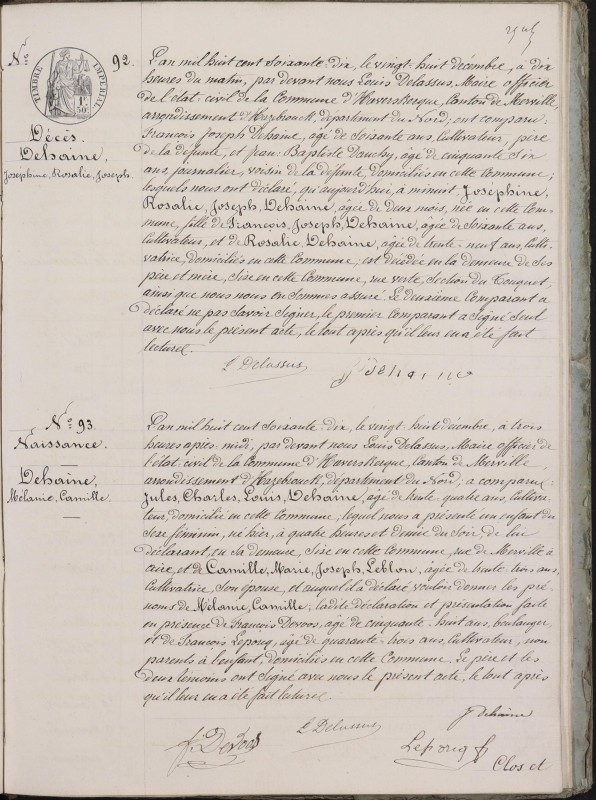 N.° 92.
TIMBRE IMPERIAL
1F
50c
Décès.
Dehaine,
Josephine, Rosalie, Joseph.
L'an mil huit cent soixante-dix, le vingt-huit décembre, à dix
heures du matin, par devant nous Louis Delassus, Maire officier
de l'état-civil de la Commune d'Haverskerque, Canton de Merville,
arrondissement d'Hazebrouck, département du Nord; ont comparu:
François Joseph Dehaine, âgé de soixante ans, Cultivateur, père
de la défunte, et Jean-Baptiste Dauchy, âgé de cinquante six
ans, journalier, voisin de la défunte, domiciliés en cette Commune;
lesquels nous ont déclaré, qu'aujourd'hui, à minuit, Joséphine,
Rosalie, Joseph, Dehaine, âgée de deux mois, née en cette Com-
mune, fille de François, Joseph, Dehaine, âgée de soixante ans,
Cultivateur, et de Rosalie Dehaine, âgée de trente-neuf ans, Culti-
vatrice, domiciliés en cette Commune; est décédée en la demeure de ses
père et mère, sise en cette Commune, rue verte, section du Touquet,
ainsi que nous nous en sommes assuré. Le deuxième comparant a
déclaré ne pas savoir signer, le premier comparant a signé seul
avec nous le présent acte, le tout après qu'il leur en a été fait
lecture.
L. Delassus
fj Dehaine
N.° 93.
Naissance.
Dehaine,
Mélanie, Camille.
L'an mil huit cent soixante-dix, le vingt-huit décembre, à trois
heures après-midi, par devant nous Louis Delassus, Maire officier de
l'état civil de la Commune d'Haverskerque, Canton de Merville,
arrondissement d'Hazebrouck, département du Nord; a comparu:
Jules, Charles, Louis, Dehaine, âgé de trente-quatre ans, Cultiva-
teur, domicilié en cette Commune, lequel nous a présenté un enfant du
sexe féminin, né hier, à quatre heures et demie du soir, de lui
déclarant, en sa demeure, sise en cette Commune, rue de Merville à
aire, et de Camille, Marie, Joseph, Leblon, âgée de trente-trois ans,
Cultivatrice, son épouse, et auquel il a déclaré vouloir donner les pré-
noms de Mélanie, Camille; ladite déclaration et présentation faite
en présence de François Devoos, âgé de cinquante-huit ans, boulanger,
et de François Lepoivq, âgé de quarante-trois ans, Cultivateur, non
parents à l'enfant, domiciliés en cette Commune. Le père et les
deux témoins ont signé avec nous le présent acte, le tout après
qu'il leur en a été fait lecture.
J Dehaine
f. Devoos
L. Delassus
Clos et